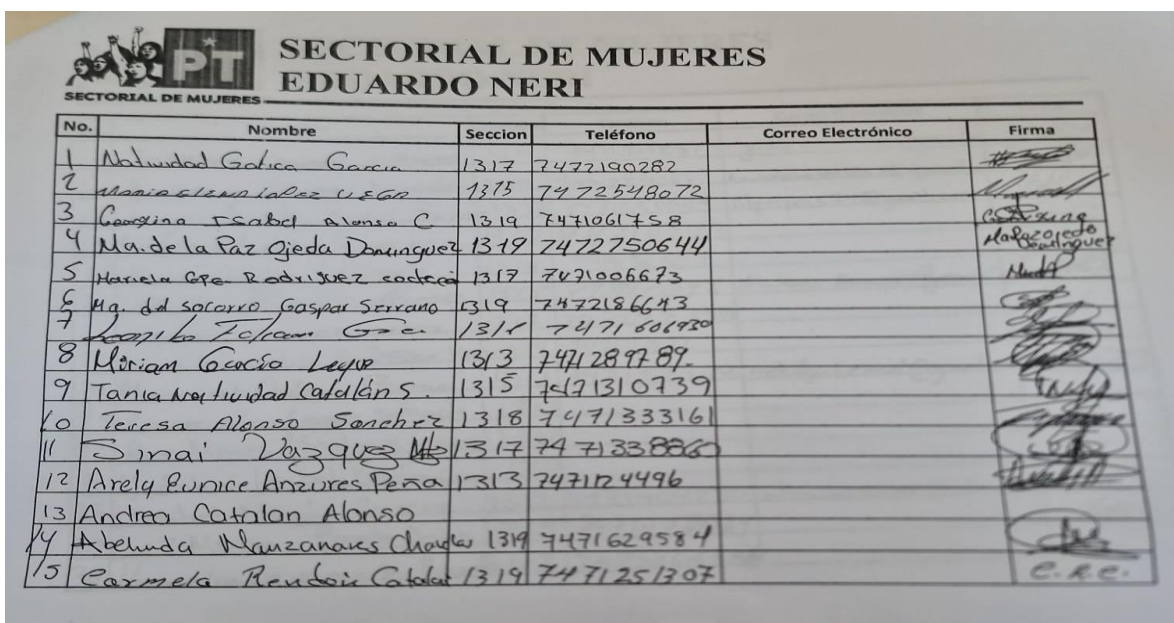 PT
SECTORIAL DE MUJERES
SECTORIAL DE MUJERES
EDUARDO NERI
No. Nombre Seccion Teléfono Correo Electrónico Firma
1 Natividad Gatica Garcia 1317 7472190282
2 Maria Elena Lopez 1315 7472548072
3 Georgina Isabel Alonso C 1319 7471061758
4 Ma. de la Paz Ojeda Dominguez 1319 7472750644 Ma Paz Ojeda Dominguez
5 Mariela Gpe. Rodriguez 1317 7471006673
6 Ma. del socorro Gaspar Serrano 1319 7472186643
7 7471606930
8 Miriam Garcia 1313 7471289789.
9 Tania Natividad Catalán S. 1315 7471310739
10 Teresa Alonso Sanchez 1318 7471333161
11 Sinai Vazquez 1317 7471338860
12 Arely Eunice Anzures Peña 1313 7471124496
13 Andrea Catalan Alonso
14 Abelinda Manzanares 1319 7471629584
15 Carmela Rendon Catalan 1319 7471251307 C.R.C.